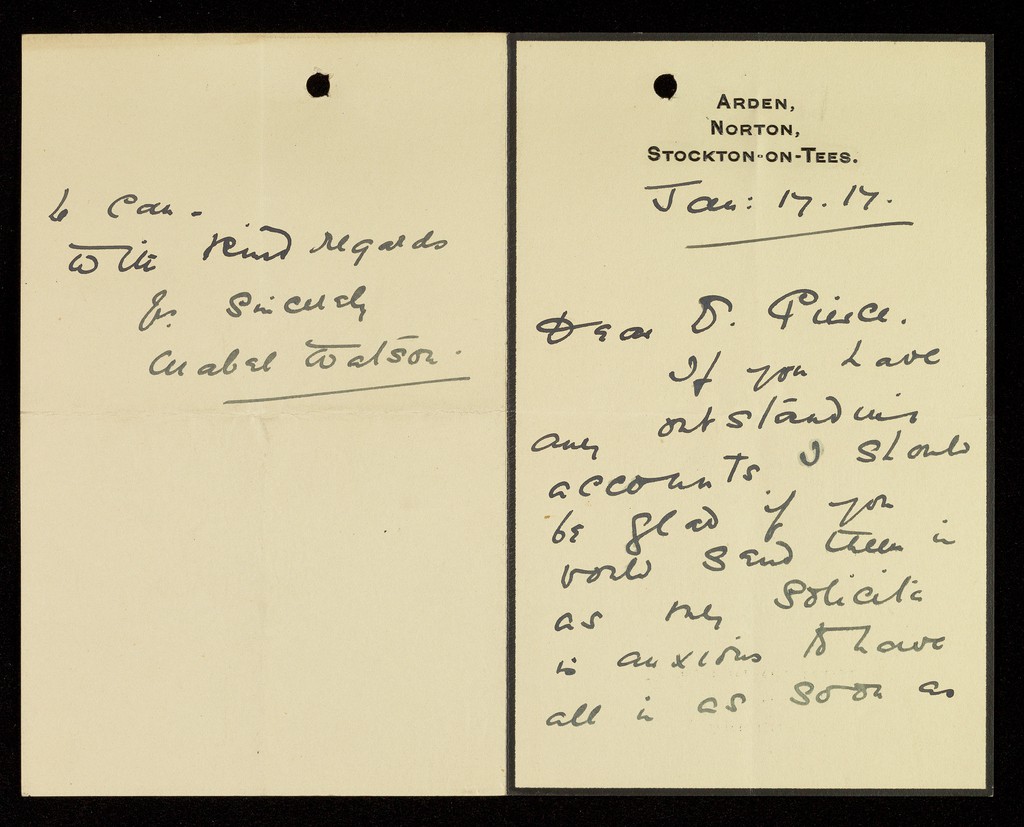 ARDEN,
NORTON,
STOCKTON-ON-TEES.
Jan: 17. 17.
Dear D. Pierce.
If you have
any outstanding
accounts I should
be glad if you
would send them in
as my Solicitor
is anxious to have
all in as soon as
he can.
With kind regards
Yrs. Sincerely
Mabel Watson.